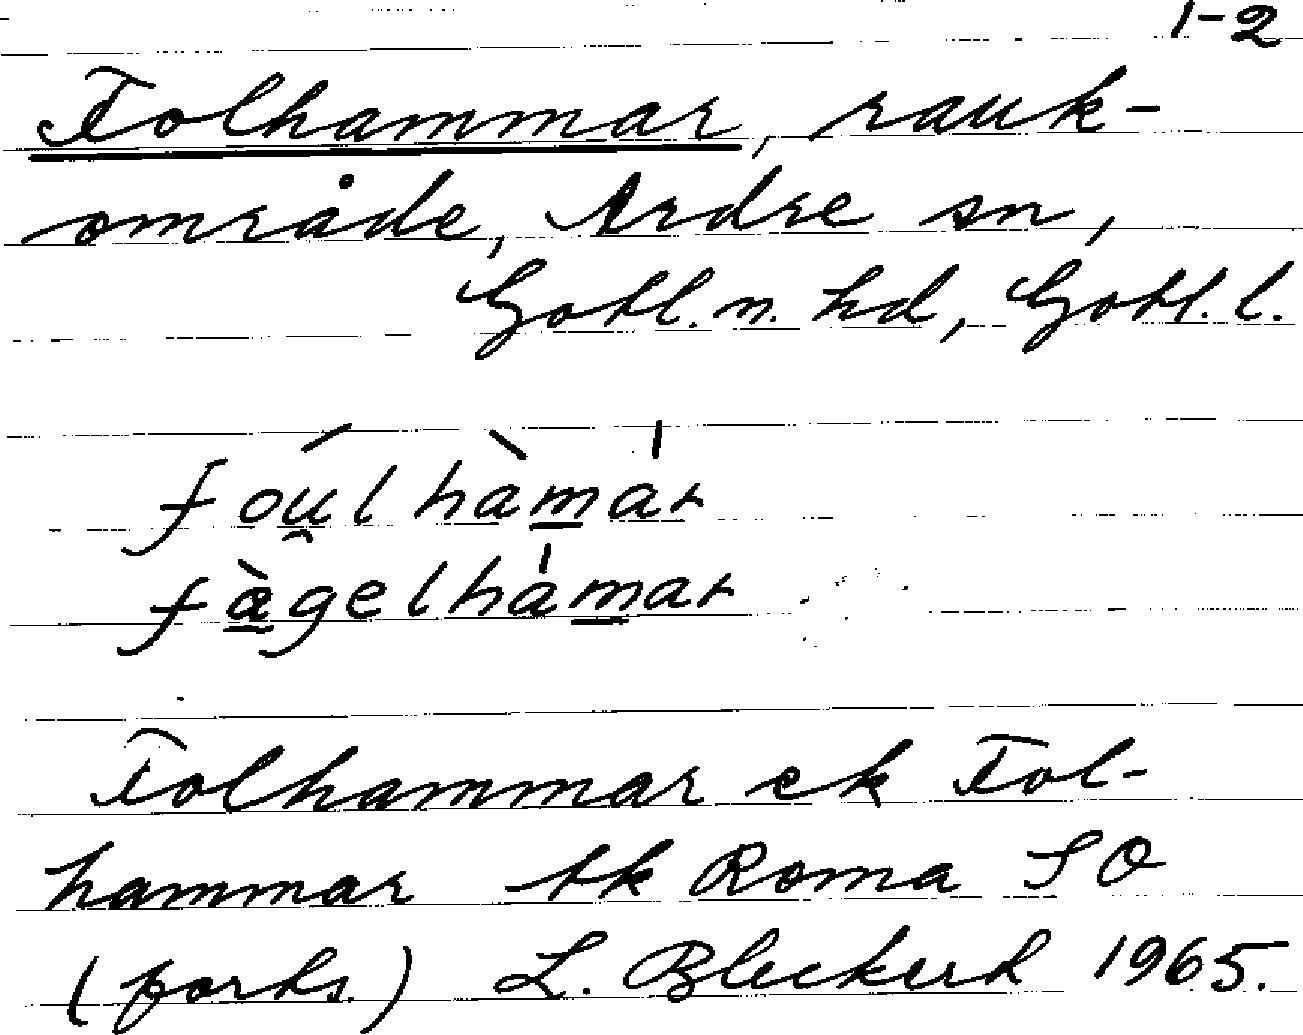 1-2
Folhammar, rauk-
område, Ardre sn,
Gotl. n. hd, Gotl. l.
fóu̯l hàmár
fàgelhámar
Folhammar ek Fol-
hammar tk Roma SO
(forts.) L. Bleckert 1965.